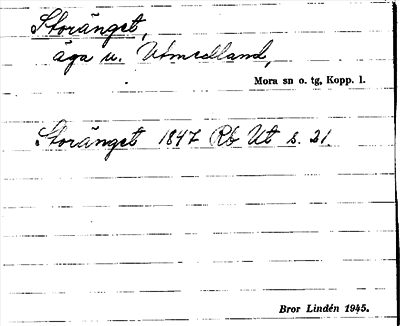 Storänget,
äga u. Utmedland,
Mora sn o. tg, Kopp. l.
Storänget 1847 Rb Ut s. 21.
Bror Lindén 1945.